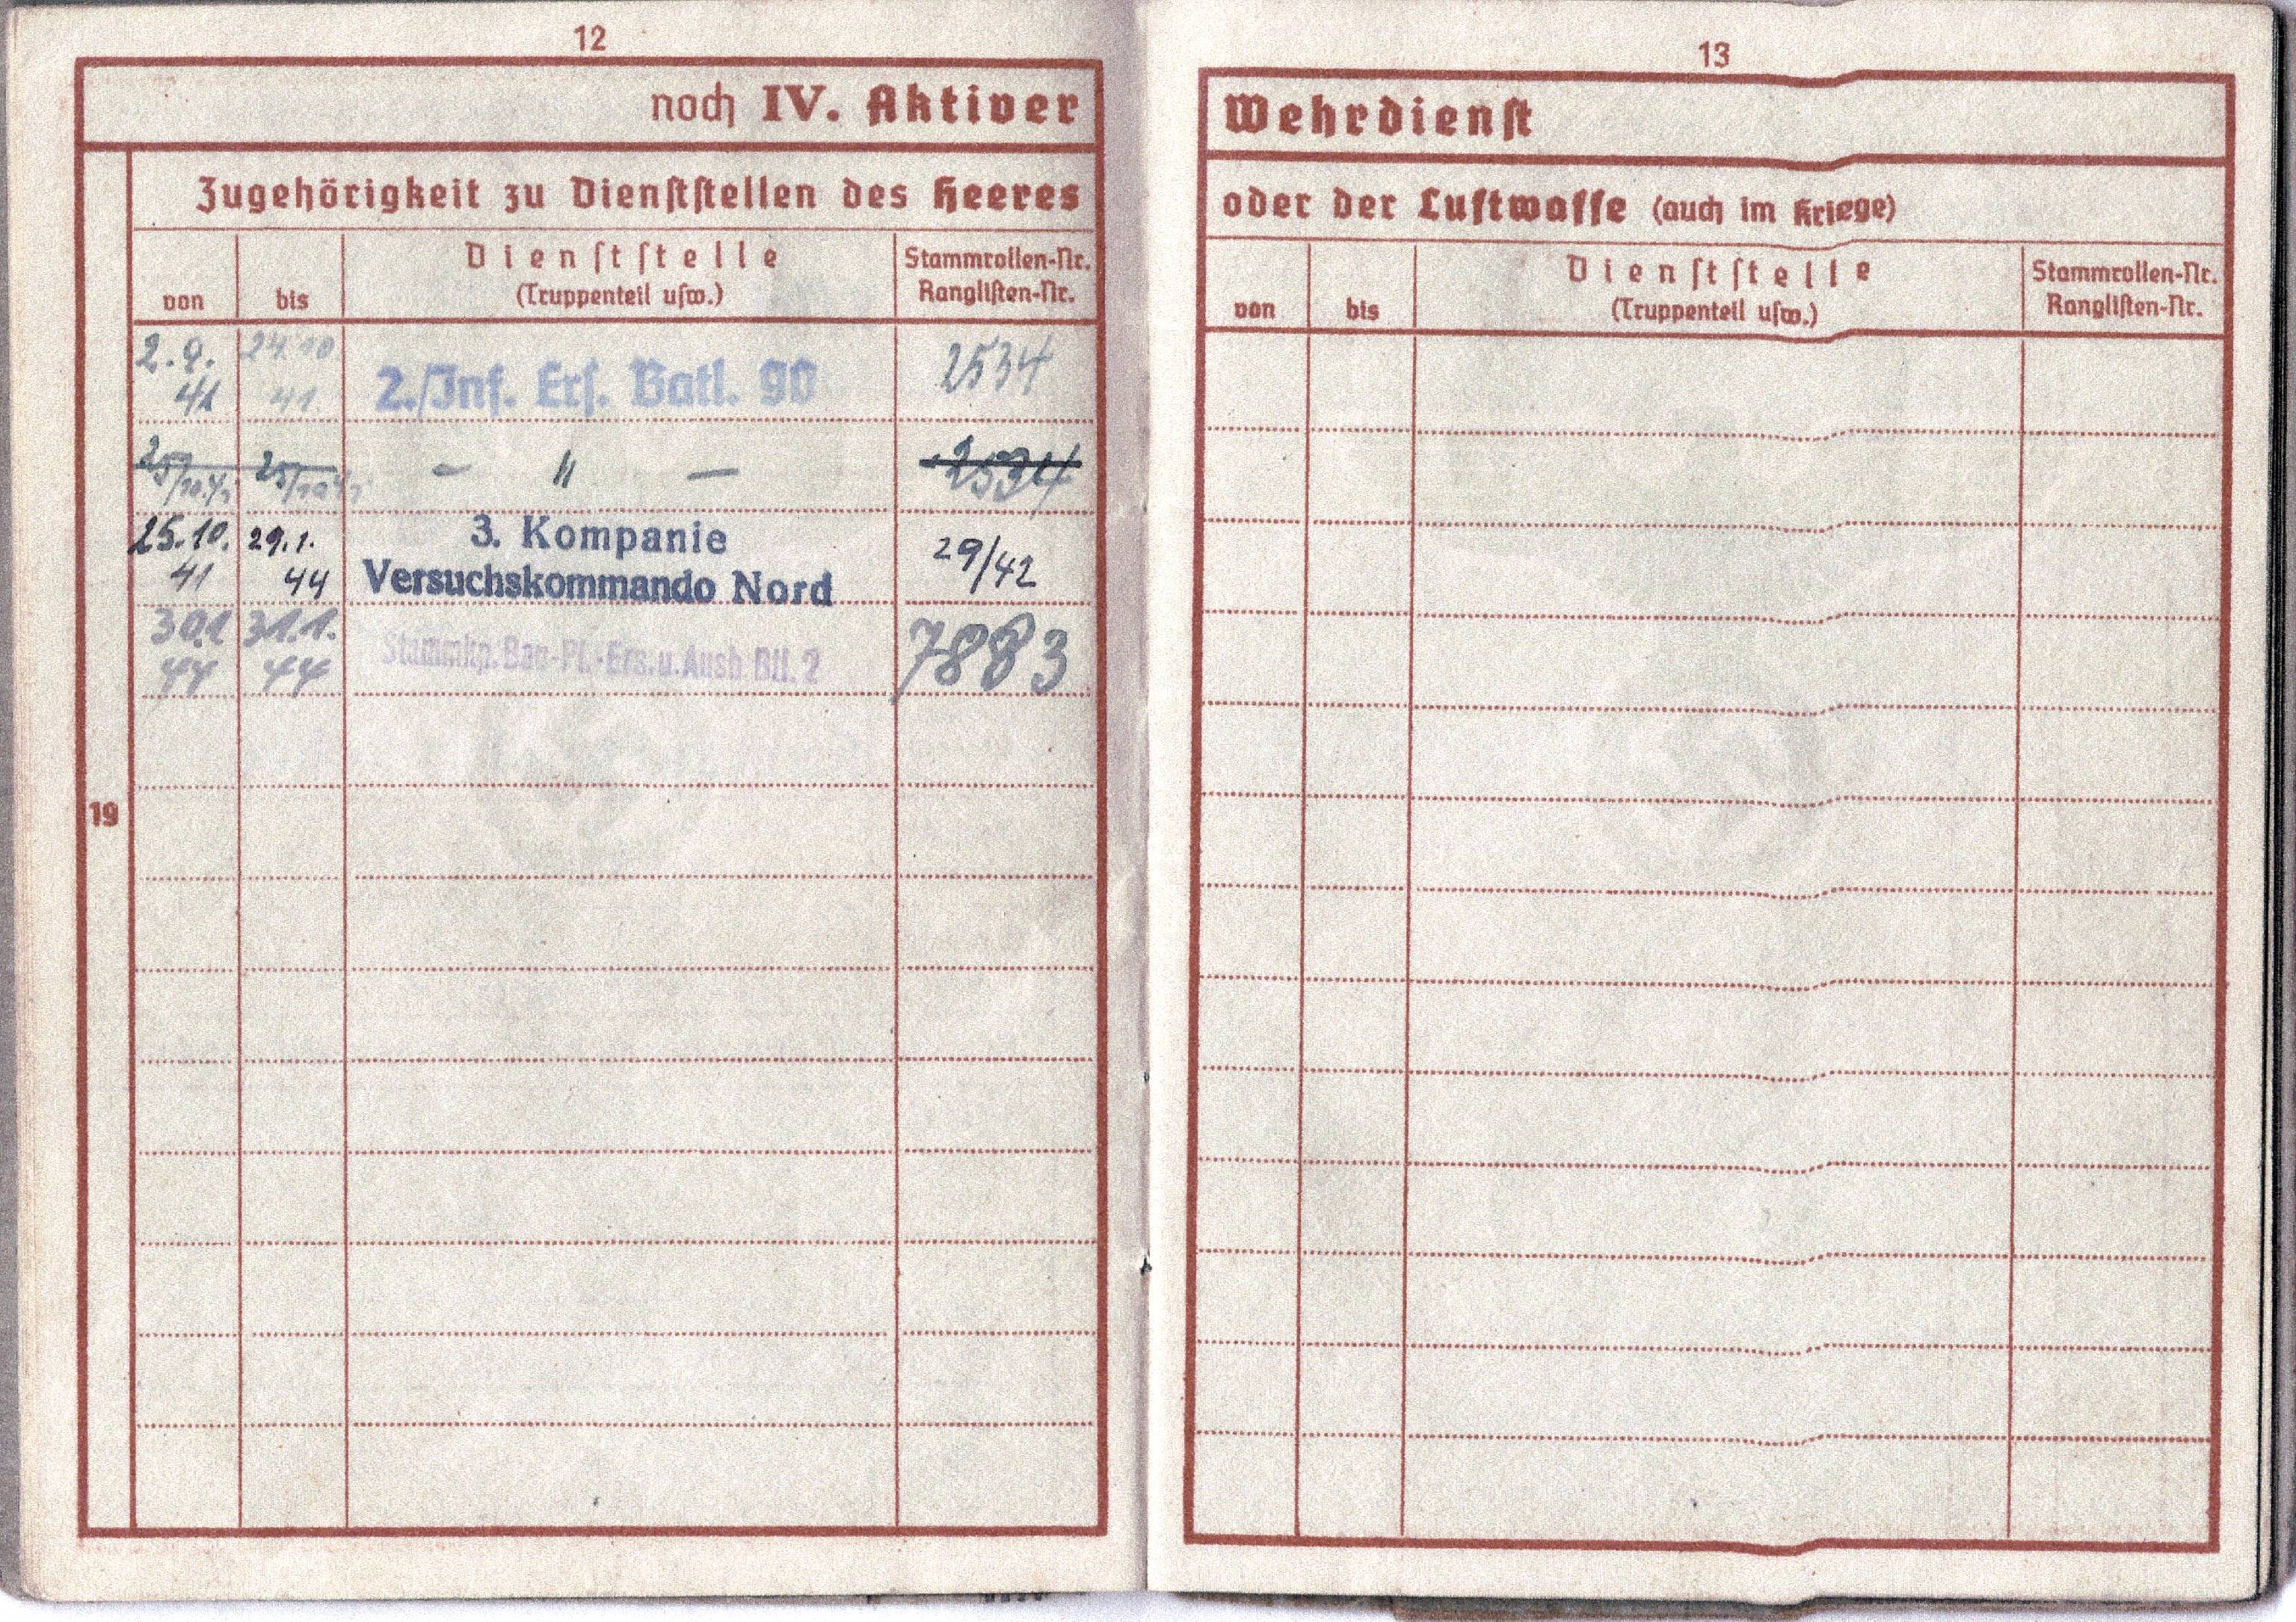 12
noch IV. Aktiver
Zugehörigkeit zu Dienststellen des Heeres
von bis Dienststelle (Truppenteil usw.) Stammrollen-Nr. Ranglisten-Nr.
2.9. 41 24.10 41. 2./Inf. Ers. Batl. 90 2534
25/10.41 25/10.41 — " — 2534
25.10. 41 29.1. 44 3. Kompanie 29/42
Versuchskommando Nord
30.1 44 31.1. 44 Stammkp. Bau-Pi.-Ers. u. Ausb. Btl. 2 7883
19
13
Wehrdienst
oder der Luftwaffe (auch im Kriege)
von bis Dienststelle (Truppenteil usw.) Stammrollen-Nr. Ranglisten-Nr.